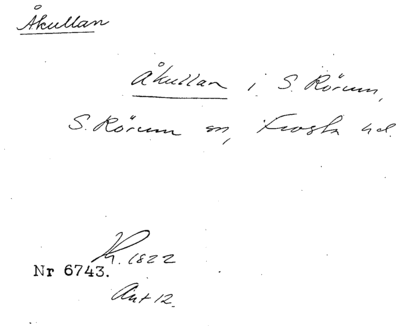 Åkullan
Åkullan i S. Rörum,
S. Rörum sn, Frosta hd.
Kr. 1822
Nr 6743.
Ant 12.